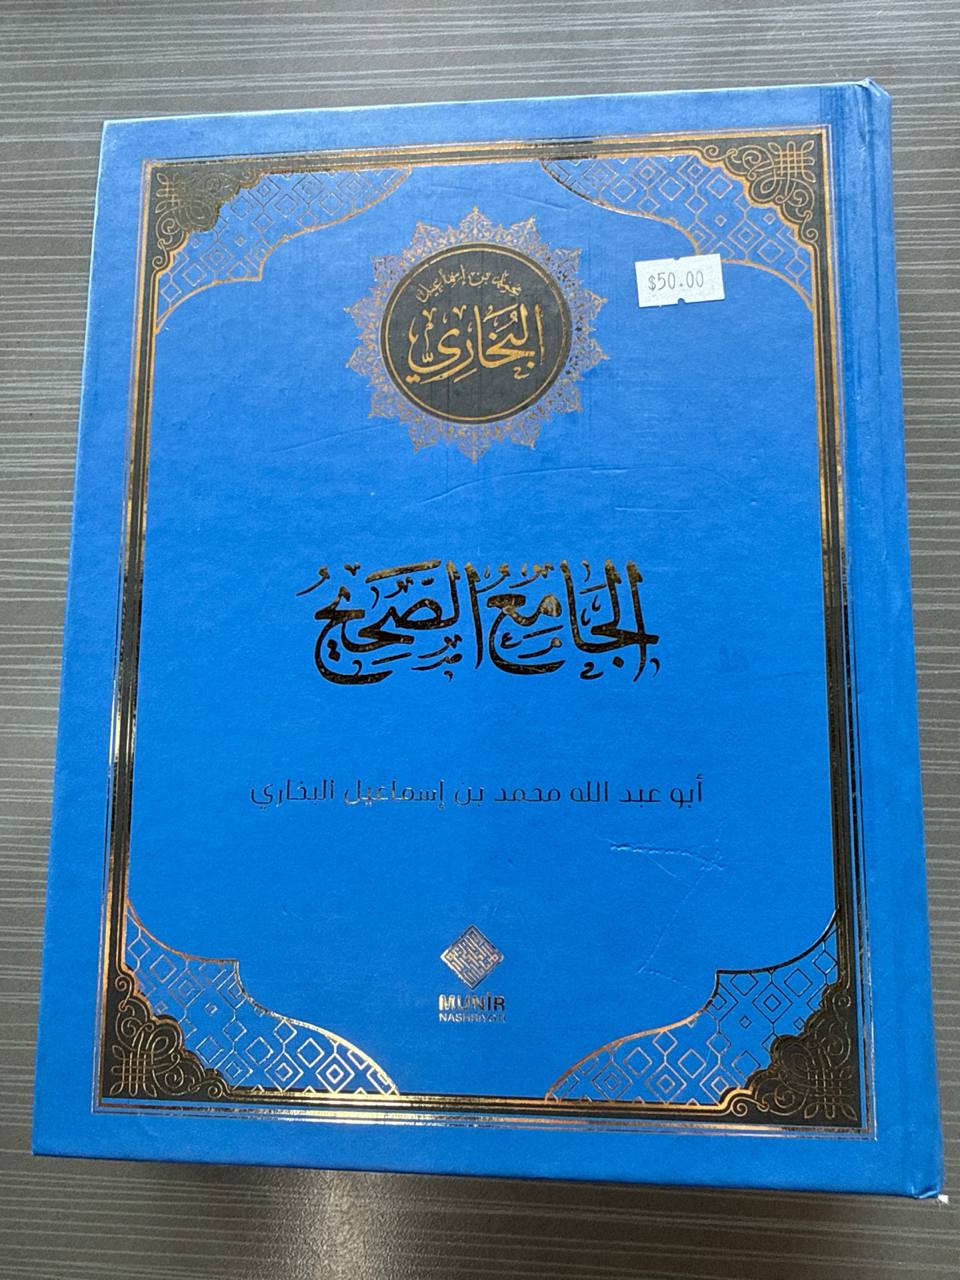 محمد بن إسماعيل
البُخَارِي
$50.00
الجَامِعُ الصَّحِيحُ
أبو عبد الله محمد بن إسماعيل البخاري
MUNIR
NASHRIYOTI